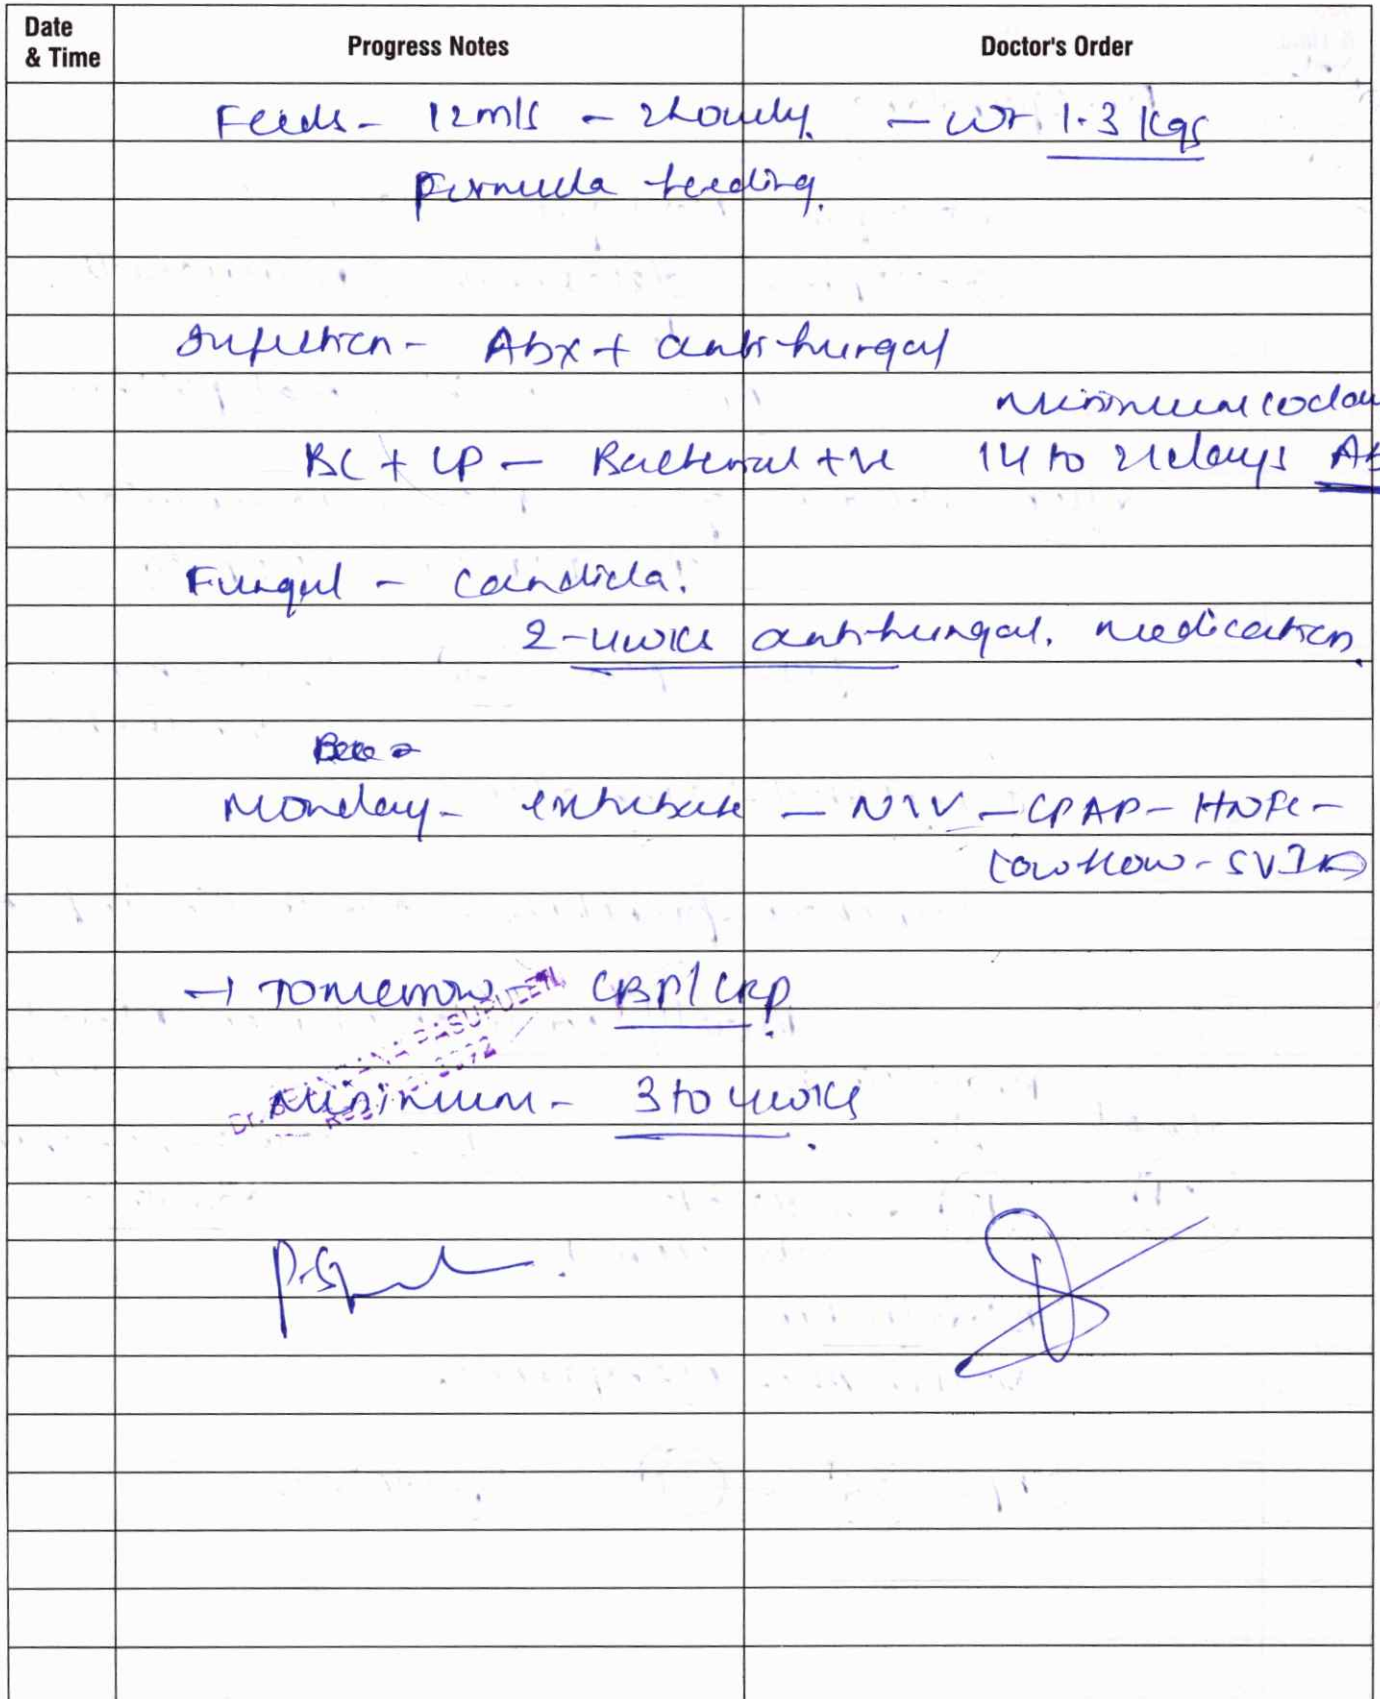 Date & Time
Progress Notes
Doctor's Order
Feeds - 12mls - 2hourly. - wt 1.3 kgs
Formula feeding.
Infection - Abx + antifungal
minimum
BC + LP - Bacterial +ve 14 to 21 days Ab
Fungal - Candida.
2-4 wks antifungal. medication.
Monday - extubate - NIV - CPAP - HNFC -
Low flow - SVIA
→ Tomorrow - CBP/CRP
Dr.
Minimum - 3 to 4 wks